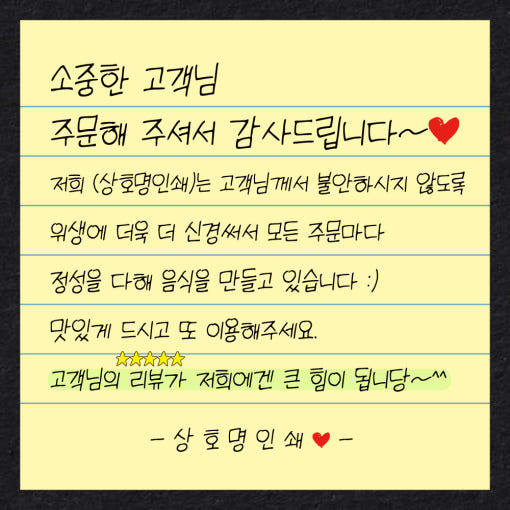 소중한 고객님
주문해 주셔서 감사드립니다~♥
저희 (상호명인쇄)는 고객님께서 불안하시지 않도록
위생에 더욱 더 신경써서 모든 주문마다
정성을 다해 음식을 만들고 있습니다 :)
맛있게 드시고 또 이용해주세요.
★★★★★
고객님의 리뷰가 저희에겐 큰 힘이 됩니당~^^
- 상호명인쇄 ♥ -